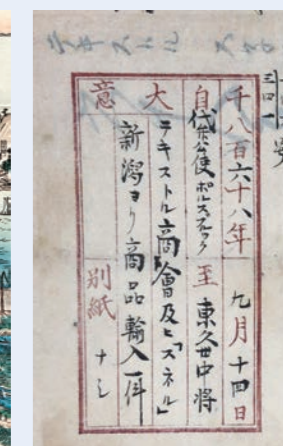 テキストル スネル
三四一 号
千八百六十八年 九月十四日
自 代弁公使ポルスブルック 至 東久世中将
大意 テキストル商會及ヒ「スネル」
新潟ヨリ商品輸入一件
別紙 ナシ